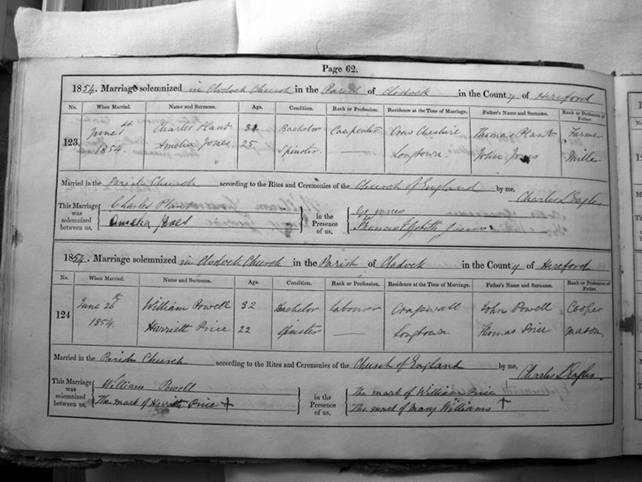 Page 62.
1854. Marriage solemnized in Clodock Church in the Parish of Clodock in the County of Hereford
No. When Married. Name and Surname. Age. Condition. Rank or Profession. Residence at the Time of Marriage. Father's Name and Surname. Rank or Profession of Father.
123 June Charles Plant Bachelor Carpenter Crew Cheshire Thomas Plant Farmer
1854 Amelia Jones 25 Spinster Longtown John Jones
Married in the Parish Church according to the Rites and Ceremonies of the Church of England by me, Charles L
This Marriage was solemnized between us, Charles Plant
Amelia Jones
in the Presence of us,
1854. Marriage solemnized in Clodock Church in the Parish of Clodock in the County of Hereford
No. When Married. Name and Surname. Age. Condition. Rank or Profession. Residence at the Time of Marriage. Father's Name and Surname. Rank or Profession of Father.
124 June 26th William Powell 32 Bachelor Labourer Craswall John Powell Cooper
1854. Harriett Price 22 Spinster — Longtown Thomas Price Mason
Married in the Parish Church according to the Rites and Ceremonies of the Church of England by me, Charles L
This Marriage was solemnized between us, William Powell
The mark of Harriett Price +
in the Presence of us, The mark of William Price +
The mark of Mary Williams +